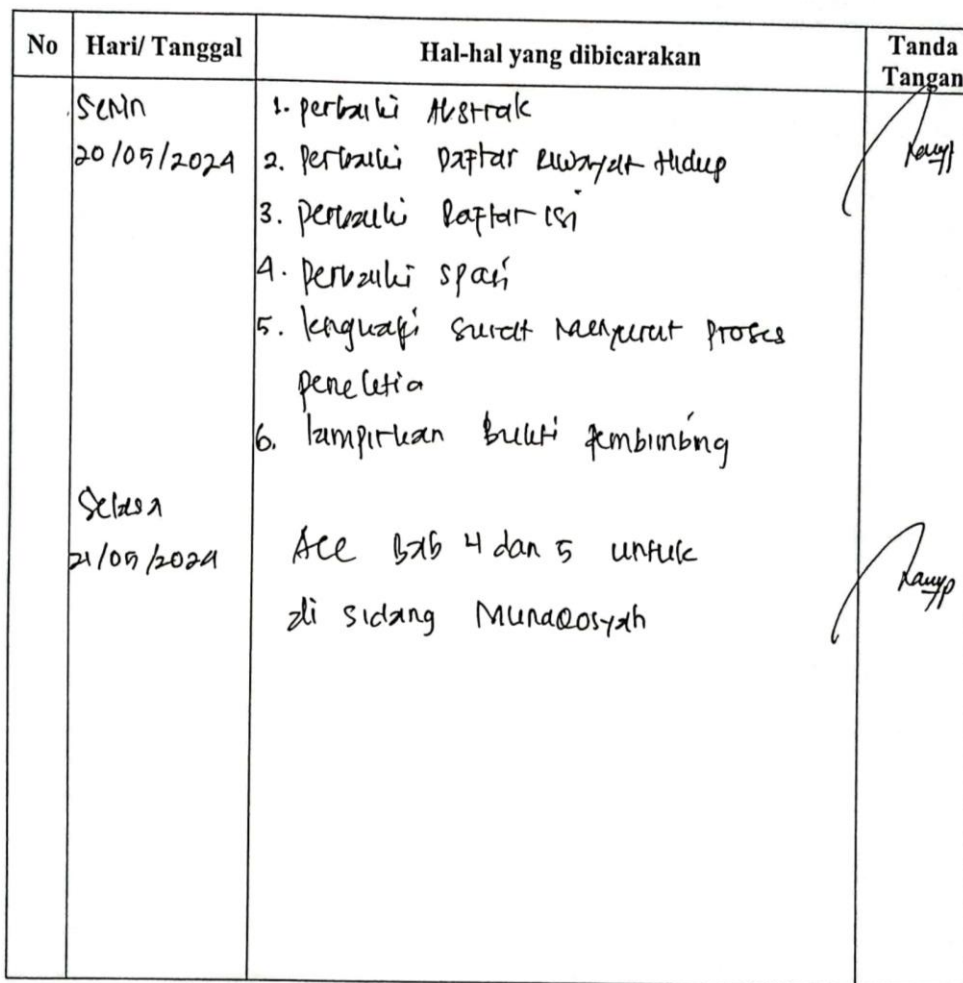 No Hari/ Tanggal Hal-hal yang dibicarakan Tanda Tangan
Senin
20/05/2024
1. perbaiki Abstrak
2. Perbaiki Daftar Riwayat Hidup
3. perbaiki Daftar isi
4. perbaiki spasi
5. lengkapi surat menyurat proses
penelitia
6. lampirkan bukti pembimbing
Selasa
21/05/2024
Acc Bab 4 dan 5 untuk
di sidang Munaqosyah